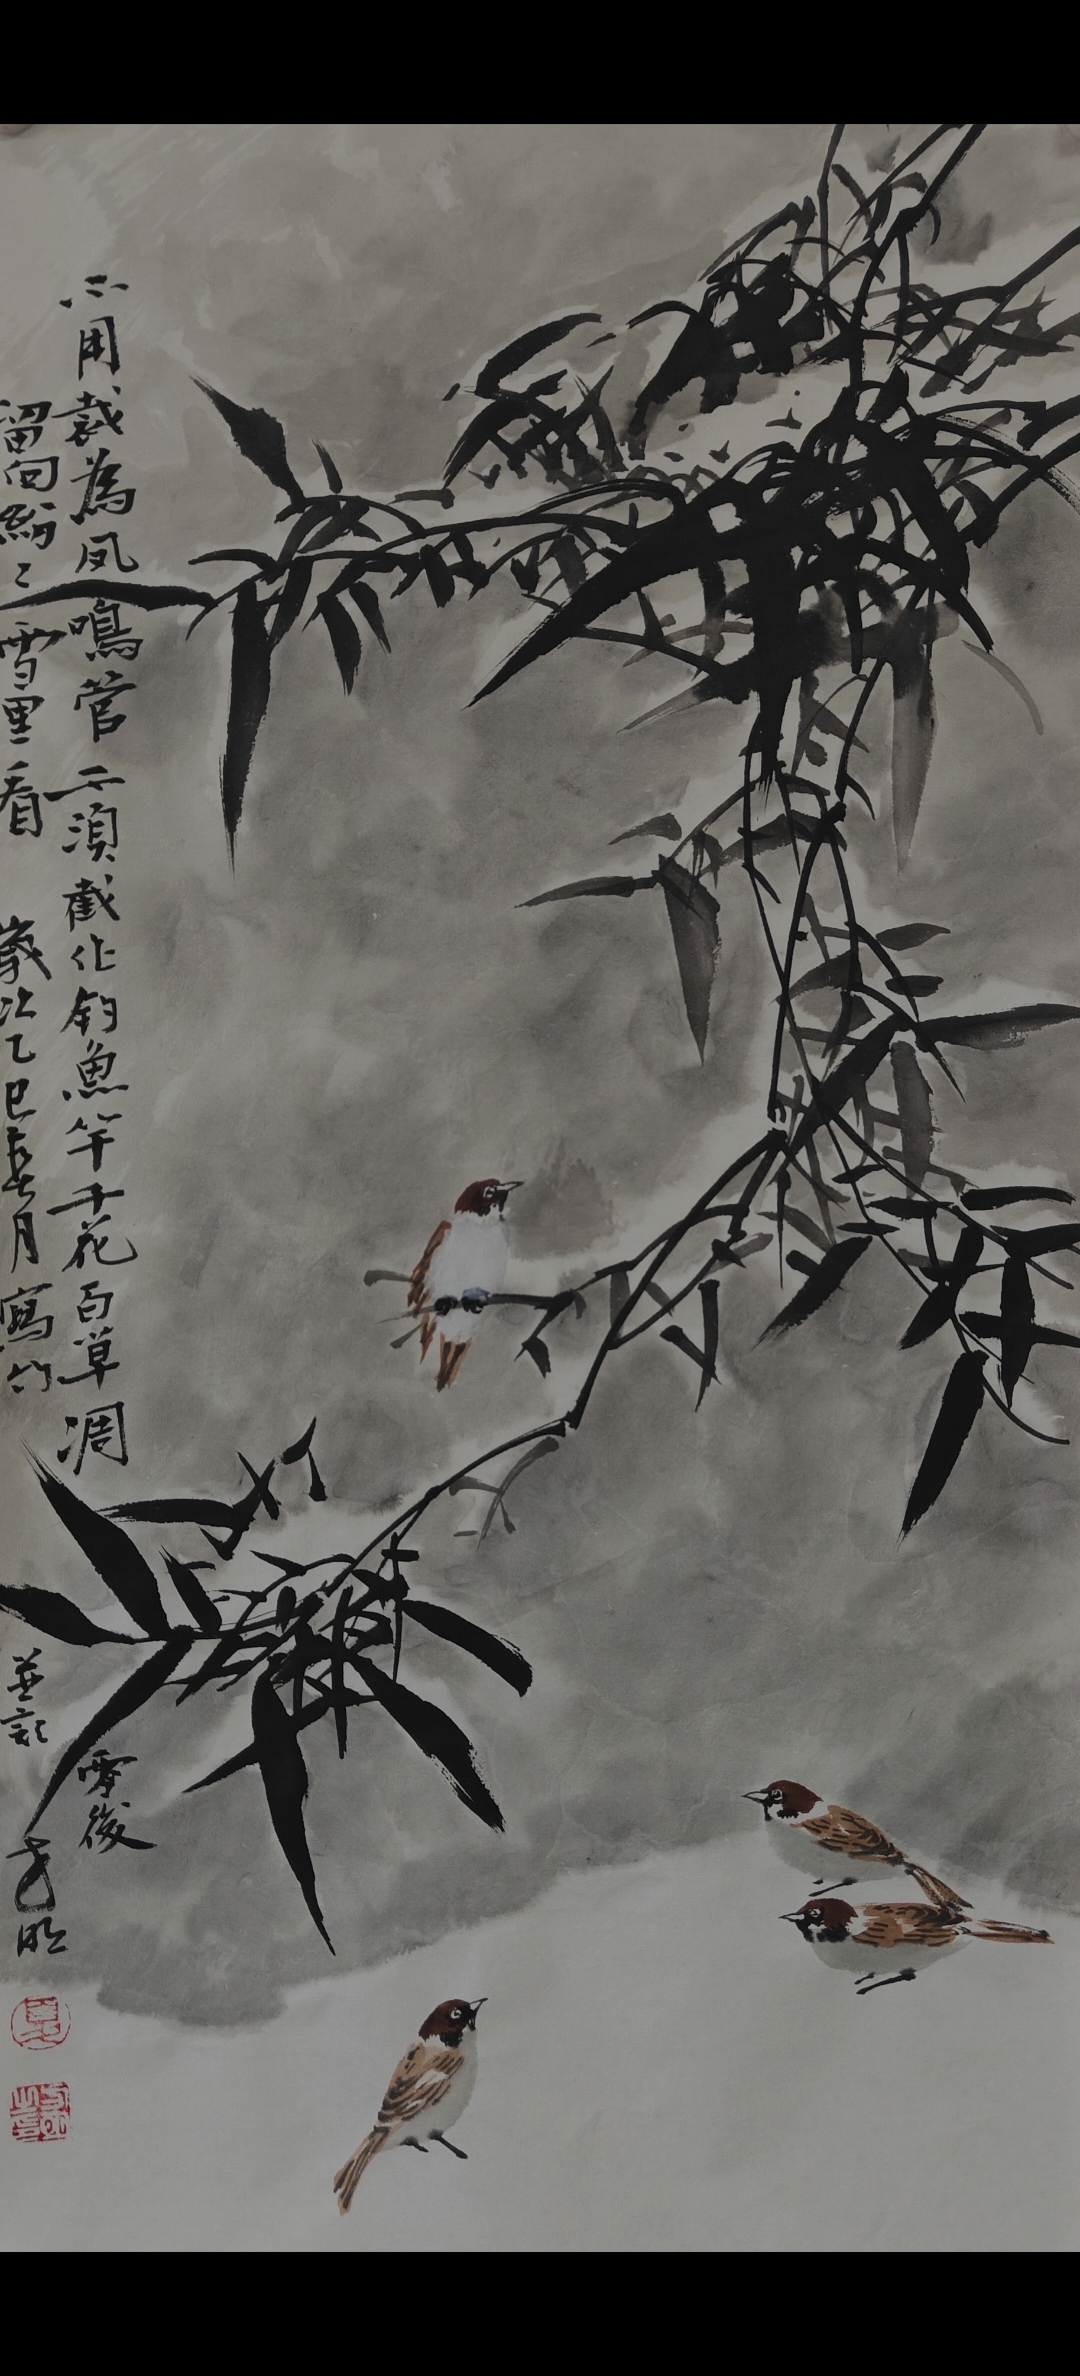 不用裁為凤鳴管不須截作釣魚竿千花百草凋零後
留向紛々雪里看 歲次乙巳春月寫竹並記